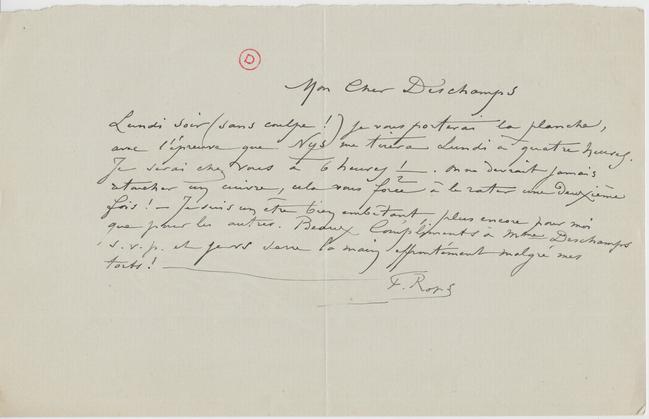 D
Mon Cher Deschamps
Lundi soir (sans coulpe !) je vous porterai la planche,
avec l'épreuve que Nys me tirera Lundi à quatre heures.
Je serai chez vous à 6 heures ! – On ne devrait jamais
retoucher un cuivre, cela vous force à le rater une deuxième
fois ! – Je suis un être bien embêtant, plus encore pour moi
que pour les autres. Beaux Compliments à Mme Deschamps
s.v.p. et je vs serre la main effrontément malgré mes
torts !
F. Rops